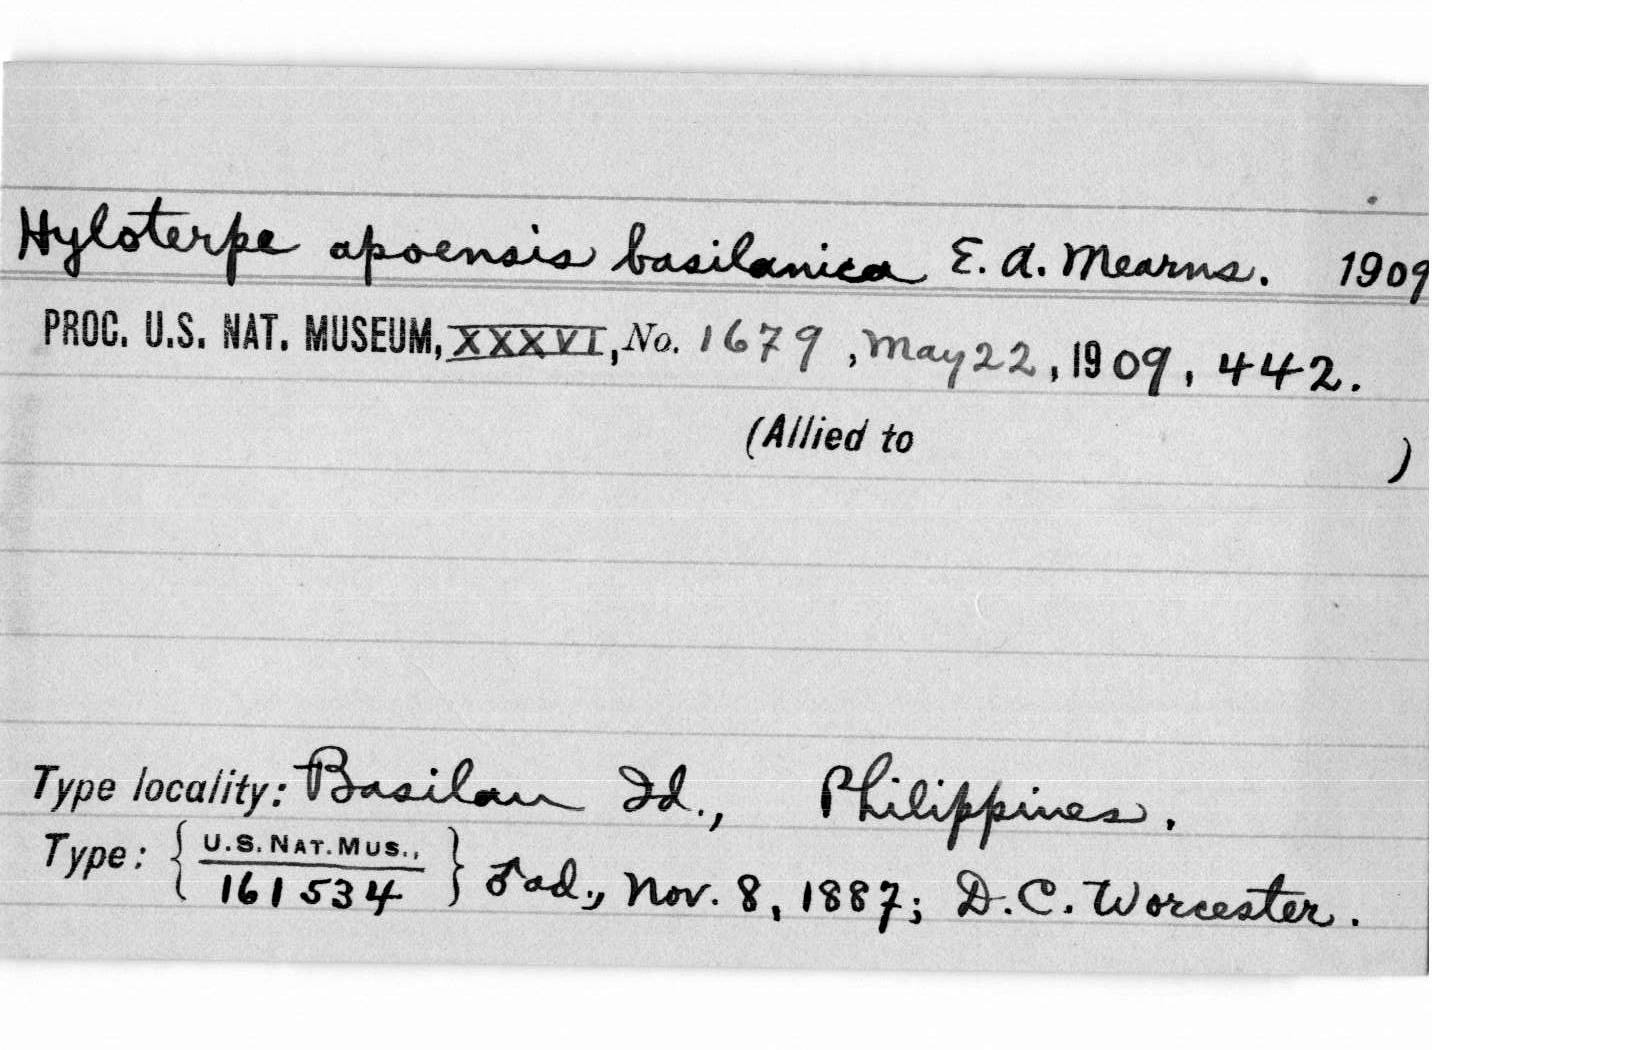 Hyloterpe apoensis basilanica E. A. Mearns. 1909
PROC. U.S. NAT. MUSEUM, XXXVI, No. 1679, May 22, 1909, 442.
(Allied to )
Type locality: Basilan Id., Philippines.
Type: { U.S. NAT. MUS., } ♂ ad., Nov. 8, 1887; D. C. Worcester.
161534